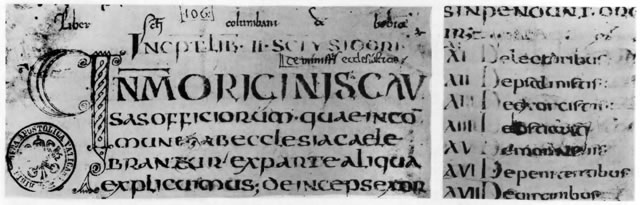 Liber sci columbani de bobio
[106]
INCP LIB II SCI YSIDORI
de ministris ecclesiasticis
INM ORIGINIS CAU
SAS OFFICIORUM QUAE IN CO
MUNE AB ECCLESIA CAELE
BRANTUR EX PARTE ALIQUA
EXPLICUIMUS; DEINCEPS EXOR
XI De lectoribus
XII De psalmistis
XIII De exorcistis
XIIII
XV De monachis
XVI De penitentibus
XVII De uirginibus